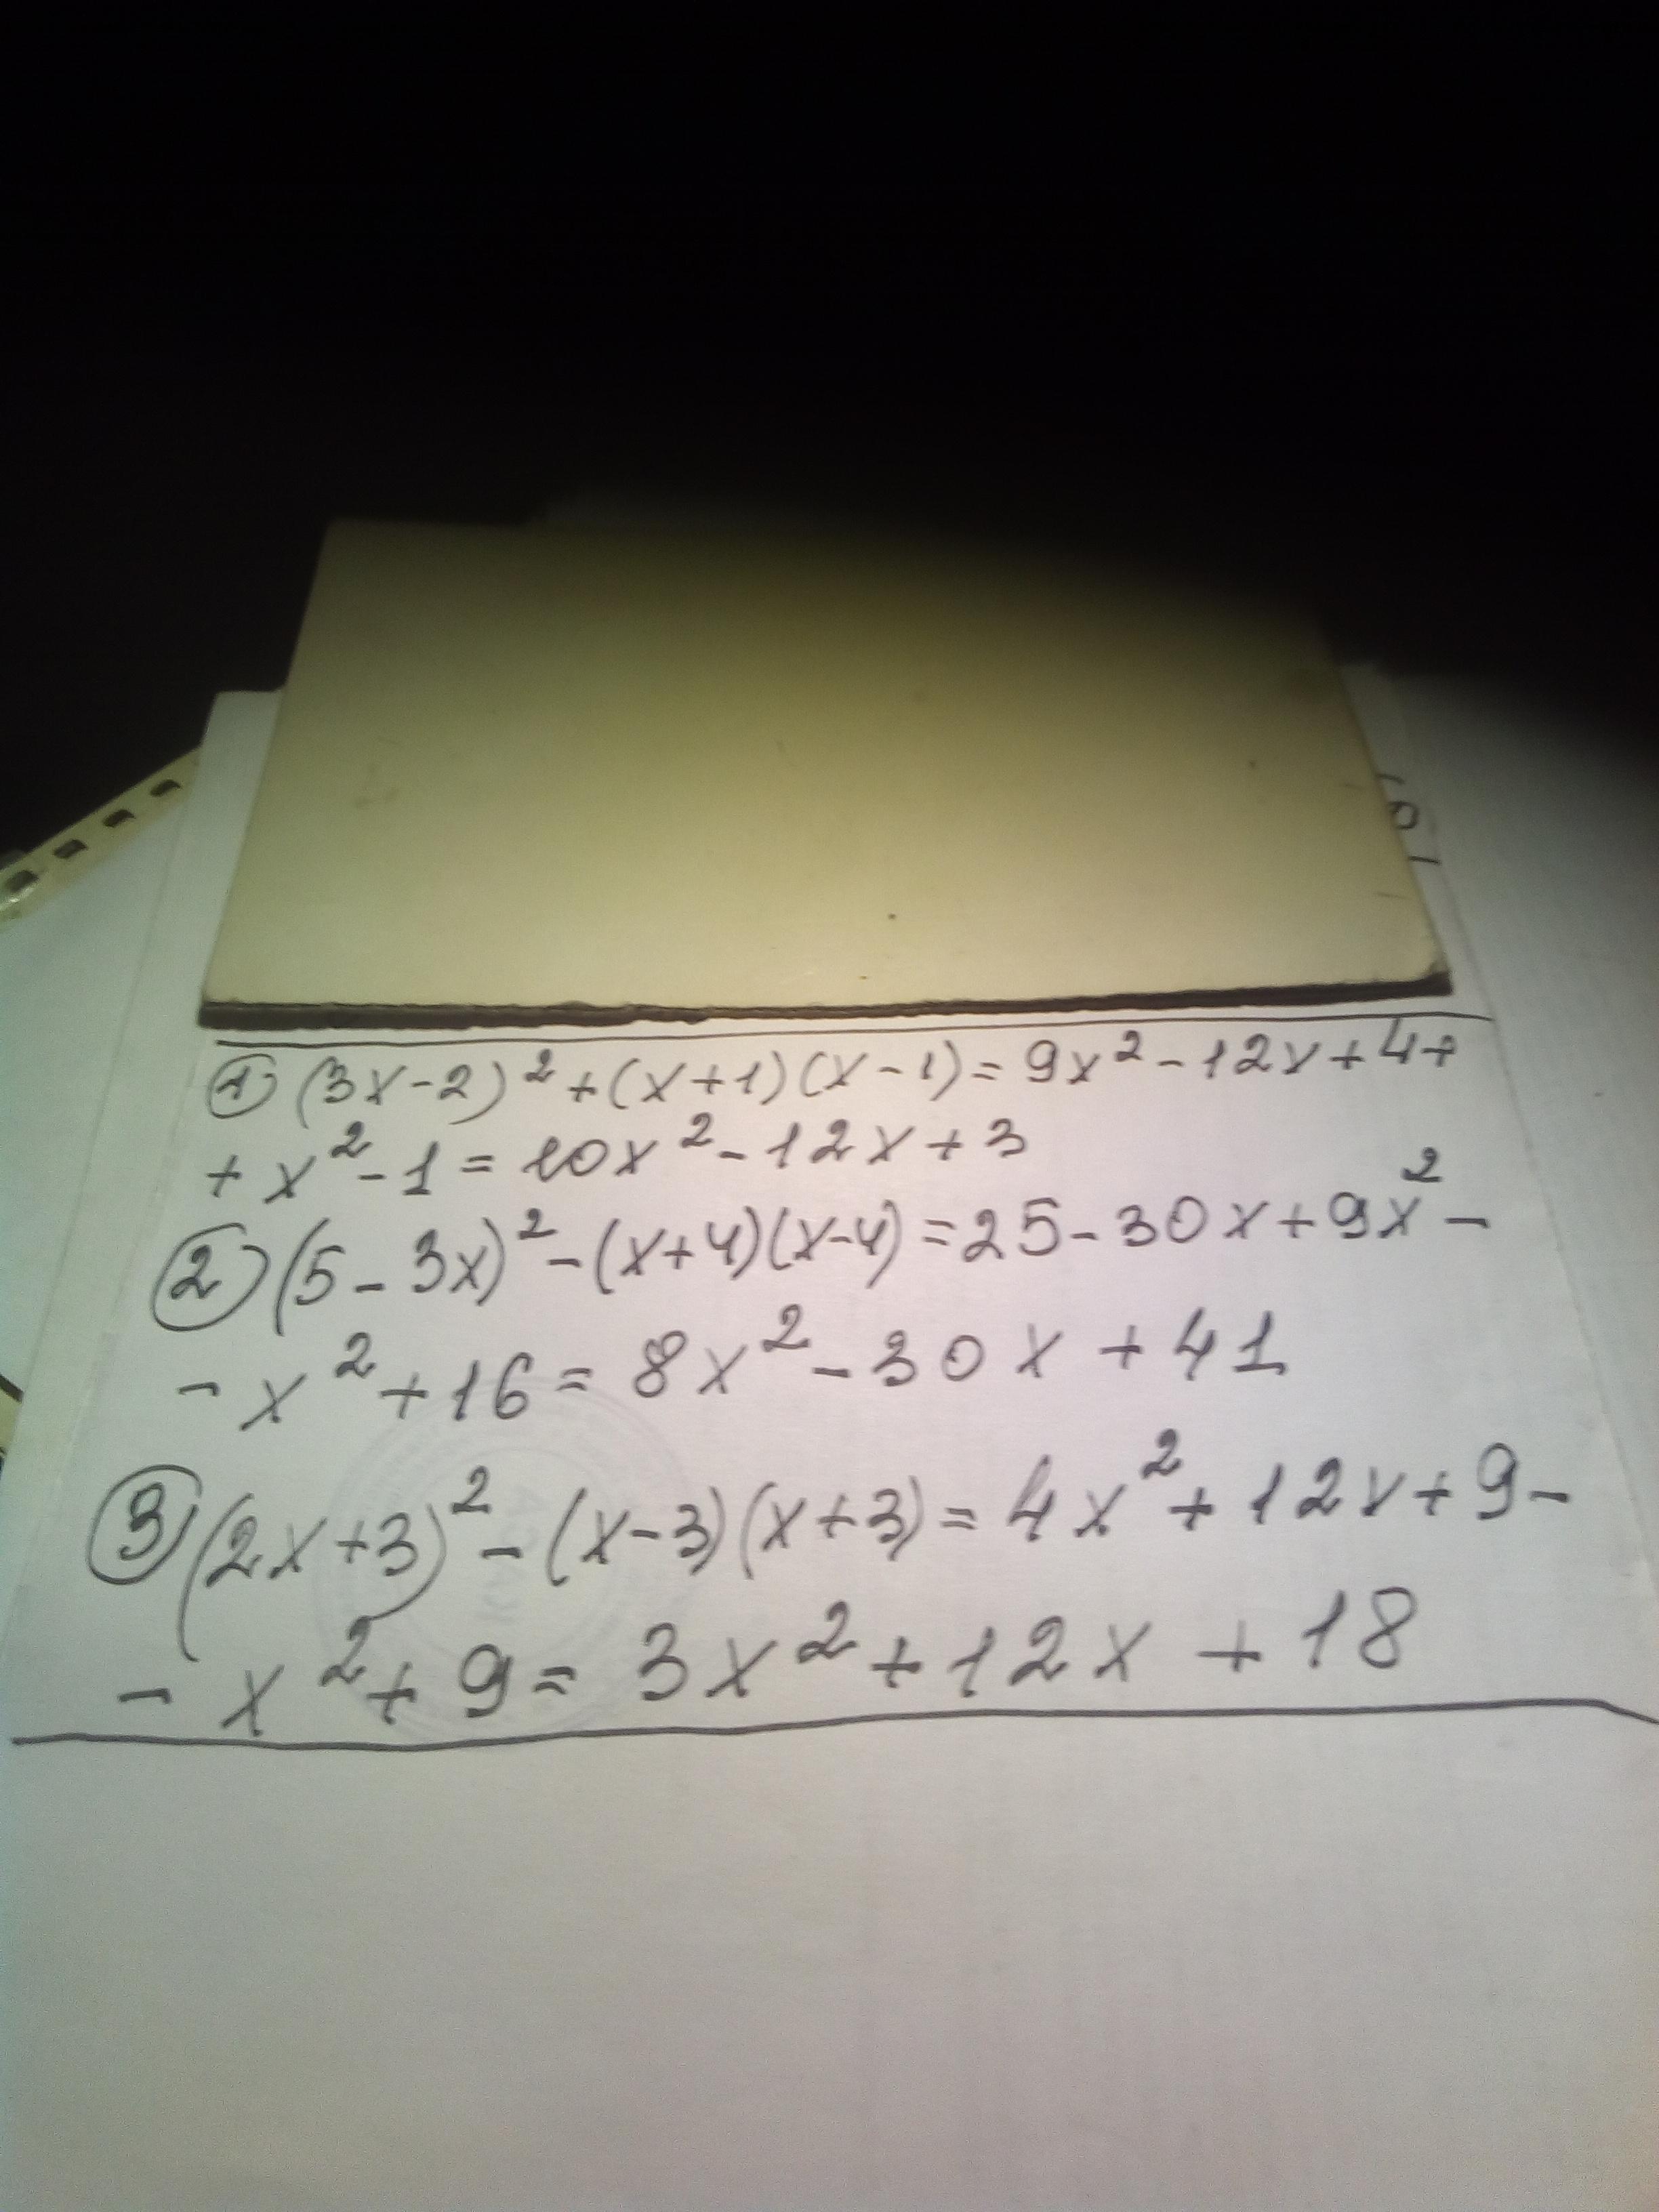 ① (3x-2)² + (x+1)(x-1) = 9x² - 12x + 4 +
+ x² - 1 = 10x² - 12x + 3
② (5 - 3x)² - (x+4)(x-4) = 25 - 30x + 9x² -
- x² + 16 = 8x² - 30x + 41
③ (2x+3)² - (x-3)(x+3) = 4x² + 12x + 9 -
- x² + 9 = 3x² + 12x + 18